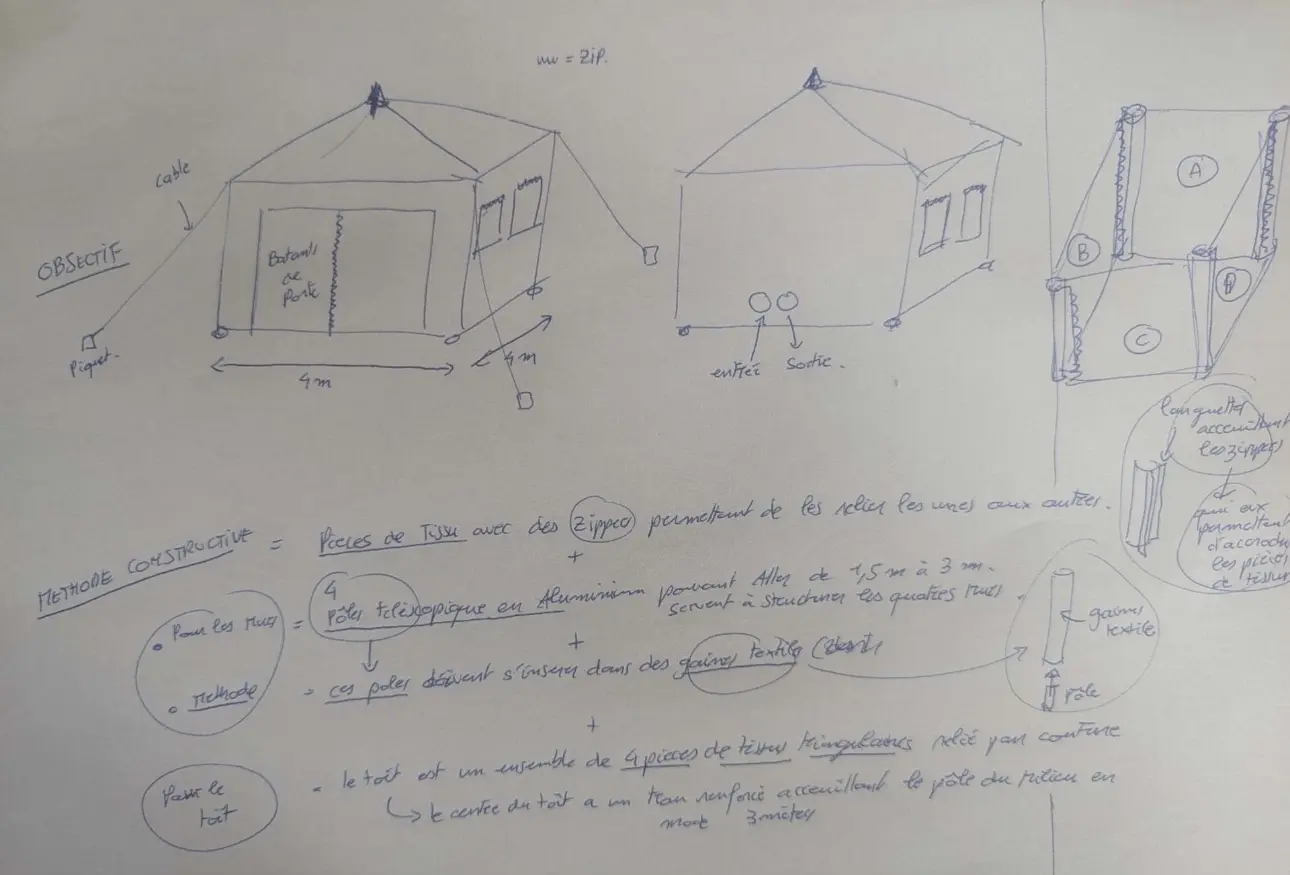 = Zip.
cable
OBJECTIF
Batants
de
Porte
Piquet.
4m
4m
entrée
Sortie.
A
B
C
D
languettes
acceuillant
les zippers
qui eux
permettent
d'accrocher
les pièces
de tissus
METHODE CONSTRUCTIVE = Pieces de Tissu avec des Zippers permettant de les relier les unes aux autres.
+
• Pour les murs = 4 Pôles téléscopique en Aluminium pouvant Aller de 1,5 m à 3 m.
servent à structurer les quatres murs.
+
• Methode = ces poles doivent s'inserer dans des gaines textile
gaines
textile
Pôle
+
Pour le
toît
= le toît est un ensemble de 4 pièces de tissus triangulaires relié par couture
↳ le centre du toît a un trou renforcé acceuillant le pôle du milieu en
mode 3 mètres